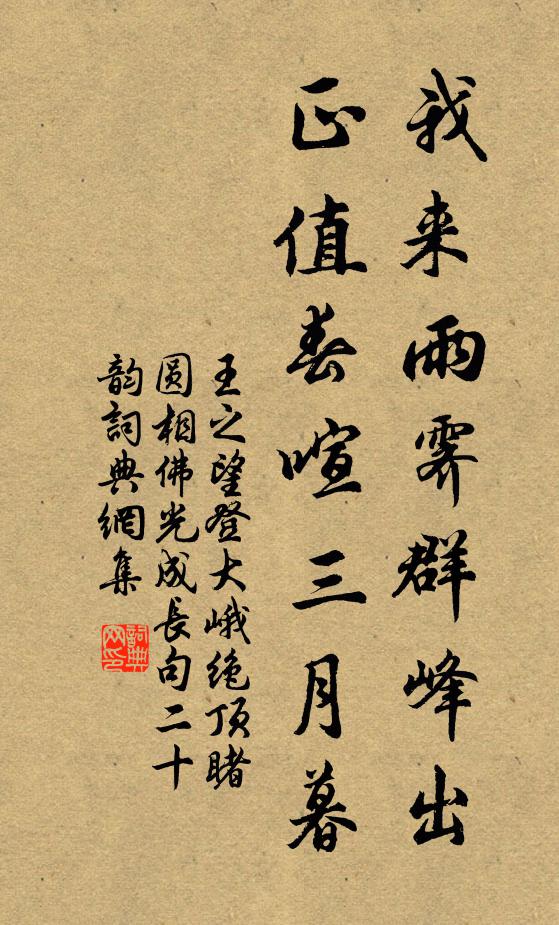 我来雨霁群峰出
正值春喧三月暮
王之望登大峨绝顶睹
圆相佛光成长句二十
韵詞典網集
詞典网印